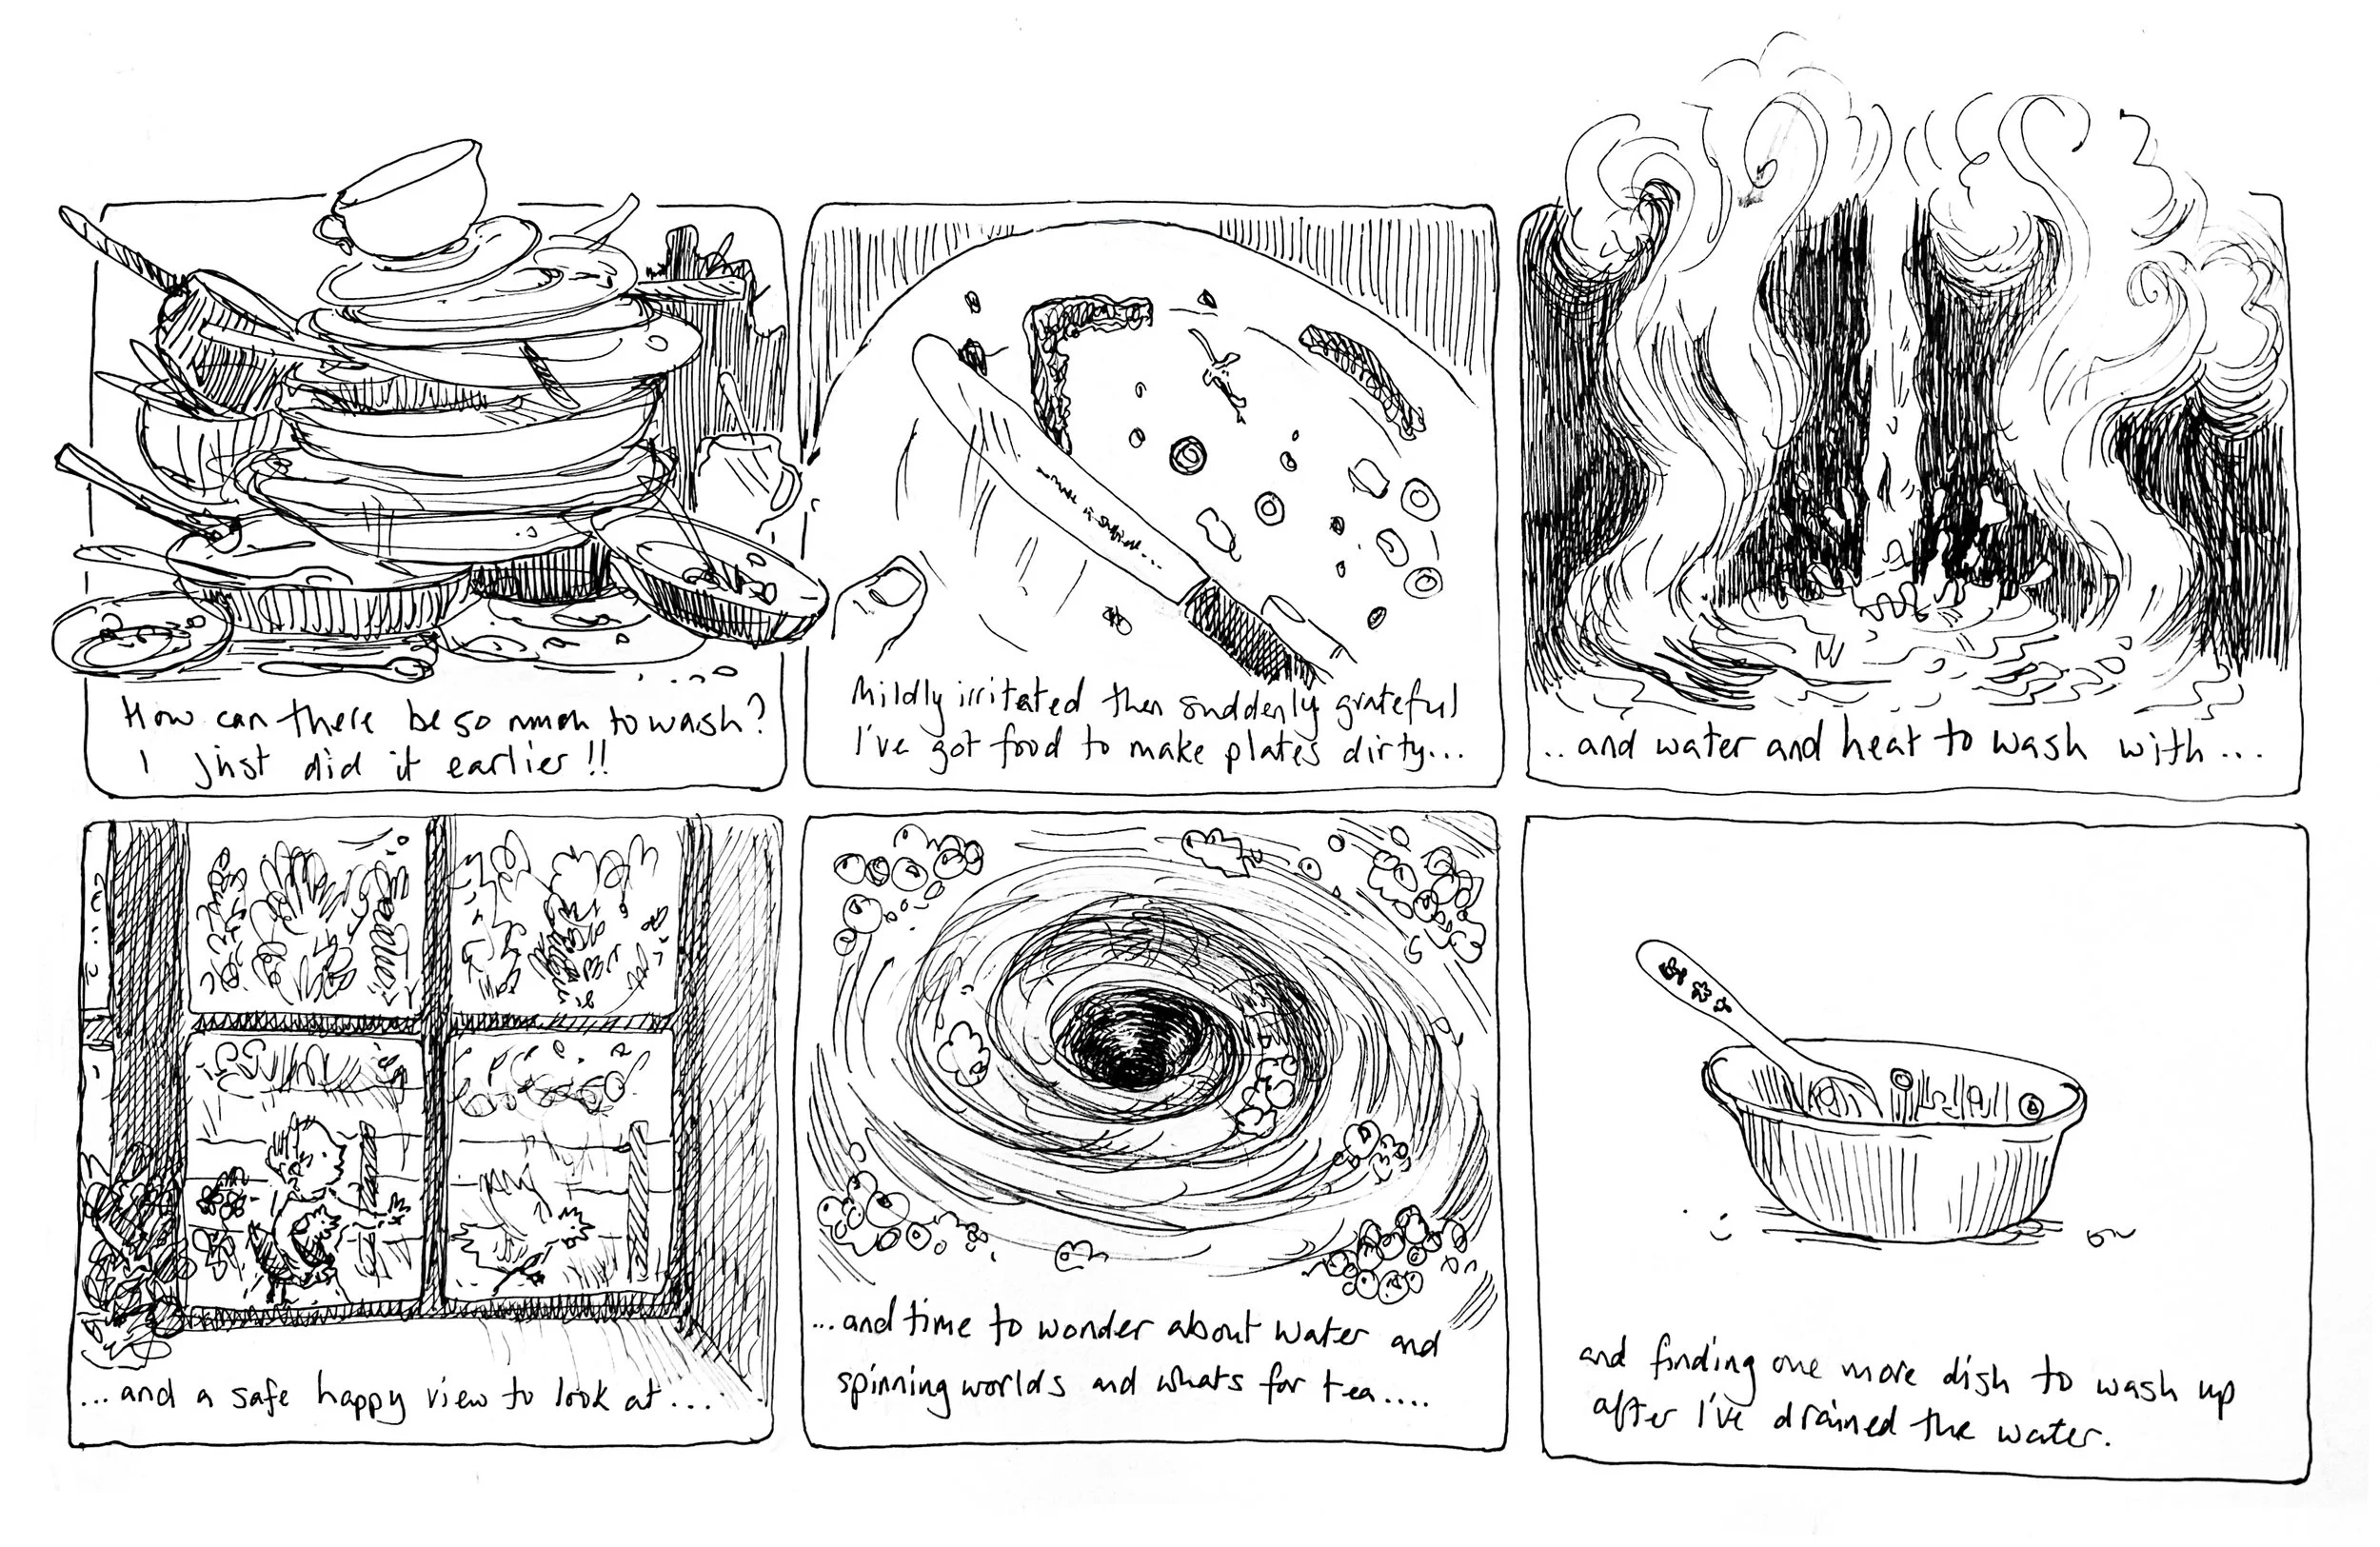 How can there be so much to wash?
I just did it earlier!!
Mildly irritated then suddenly grateful
I've got food to make plates dirty...
..and water and heat to wash with...
...and a safe happy view to look at...
...and time to wonder about water and
spinning worlds and whats for tea....
and finding one more dish to wash up
after I've drained the water.